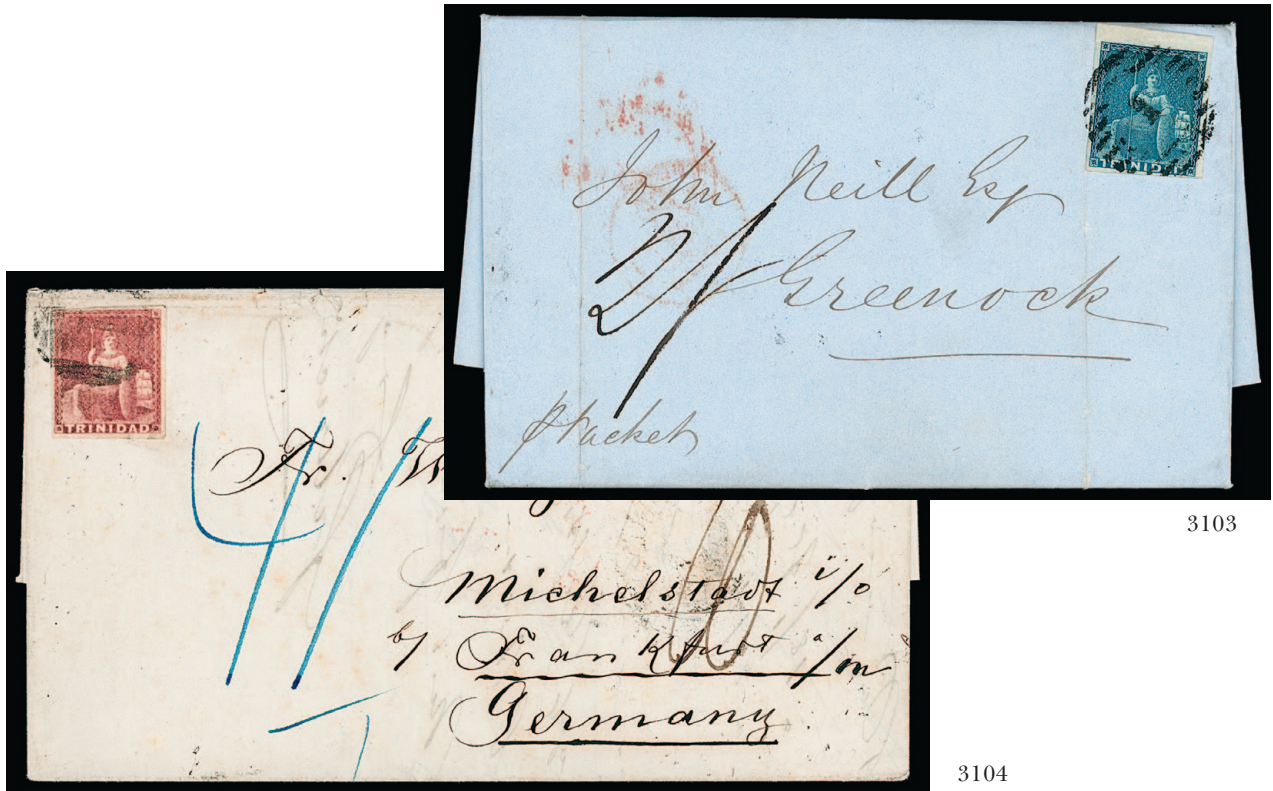 TRINIDAD
John Neill Esq
2/
Greenock
p Packet
3103
TRINIDAD
Fr.
Michelstadt i/o
b/ Frankfurt a/m
Germany
3104